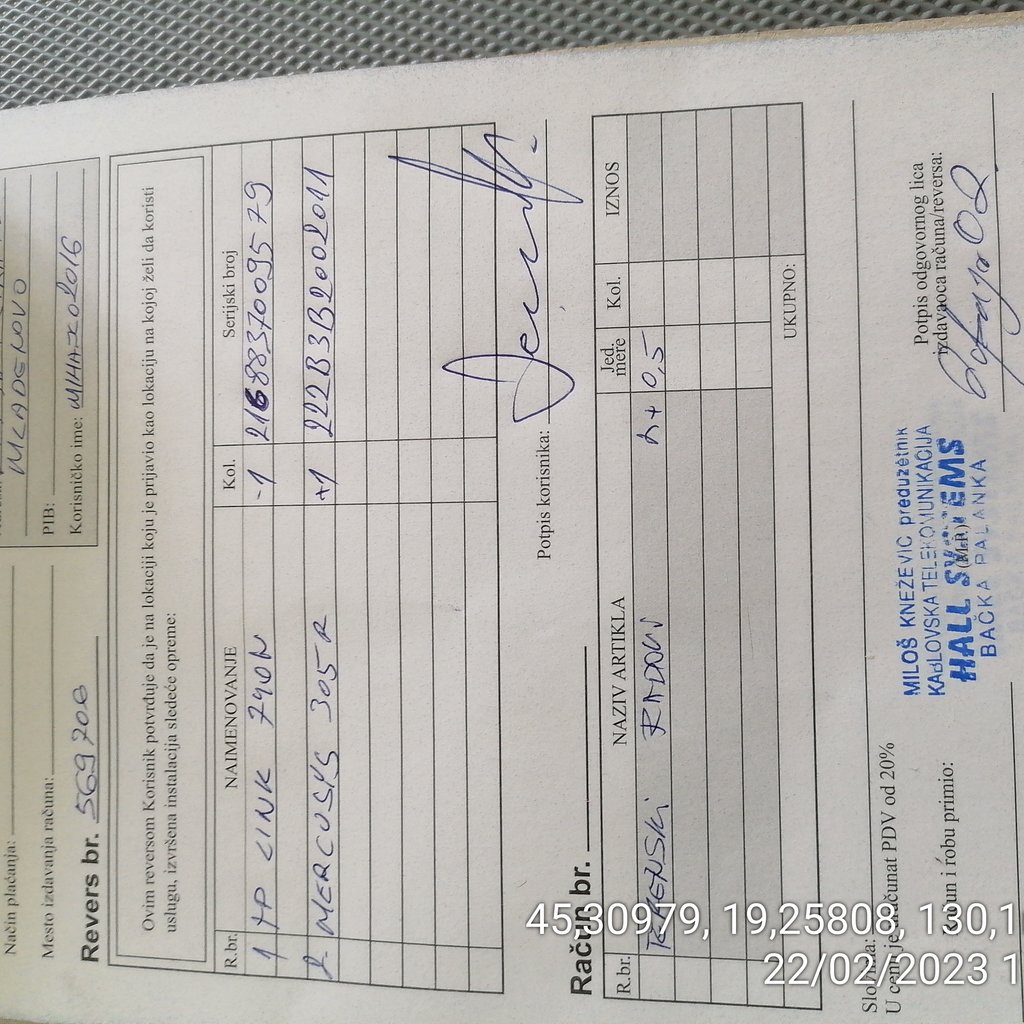 MLADENOVO
Način plaćanja:
PIB:
Mesto izdavanja računa:
Korisničko ime:
Revers br. 569706
Ovim reversom Korisnik potvrđuje da je na lokaciji koju je prijavio kao lokaciju na kojoj želi da koristi
uslugu, izvršena instalacija sledeće opreme:
R.br. NAIMENOVANJE Kol. Serijski broj
1 TP LINK 740N -1 2168837009579
2 MERCUSYS 305R +1 222B3B2002011
Potpis korisnika:
Račun br.
R.br. NAZIV ARTIKLA Jed. mere Kol. IZNOS
TERENSKI RADOVI h+ 0,5
UKUPNO:
Slovima:
U cenu je uračunat PDV od 20%
Račun i robu primio:
(M.P.)
Potpis odgovornog lica
izdavaoca računa/reversa:
MILOŠ KNEŽEVIĆ preduzetnik
KABLOVSKA TELEKOMUNIKACIJA
HALL SYSTEMS
BAČKA PALANKA
4530979, 19,25808, 130,1
22/02/2023 1